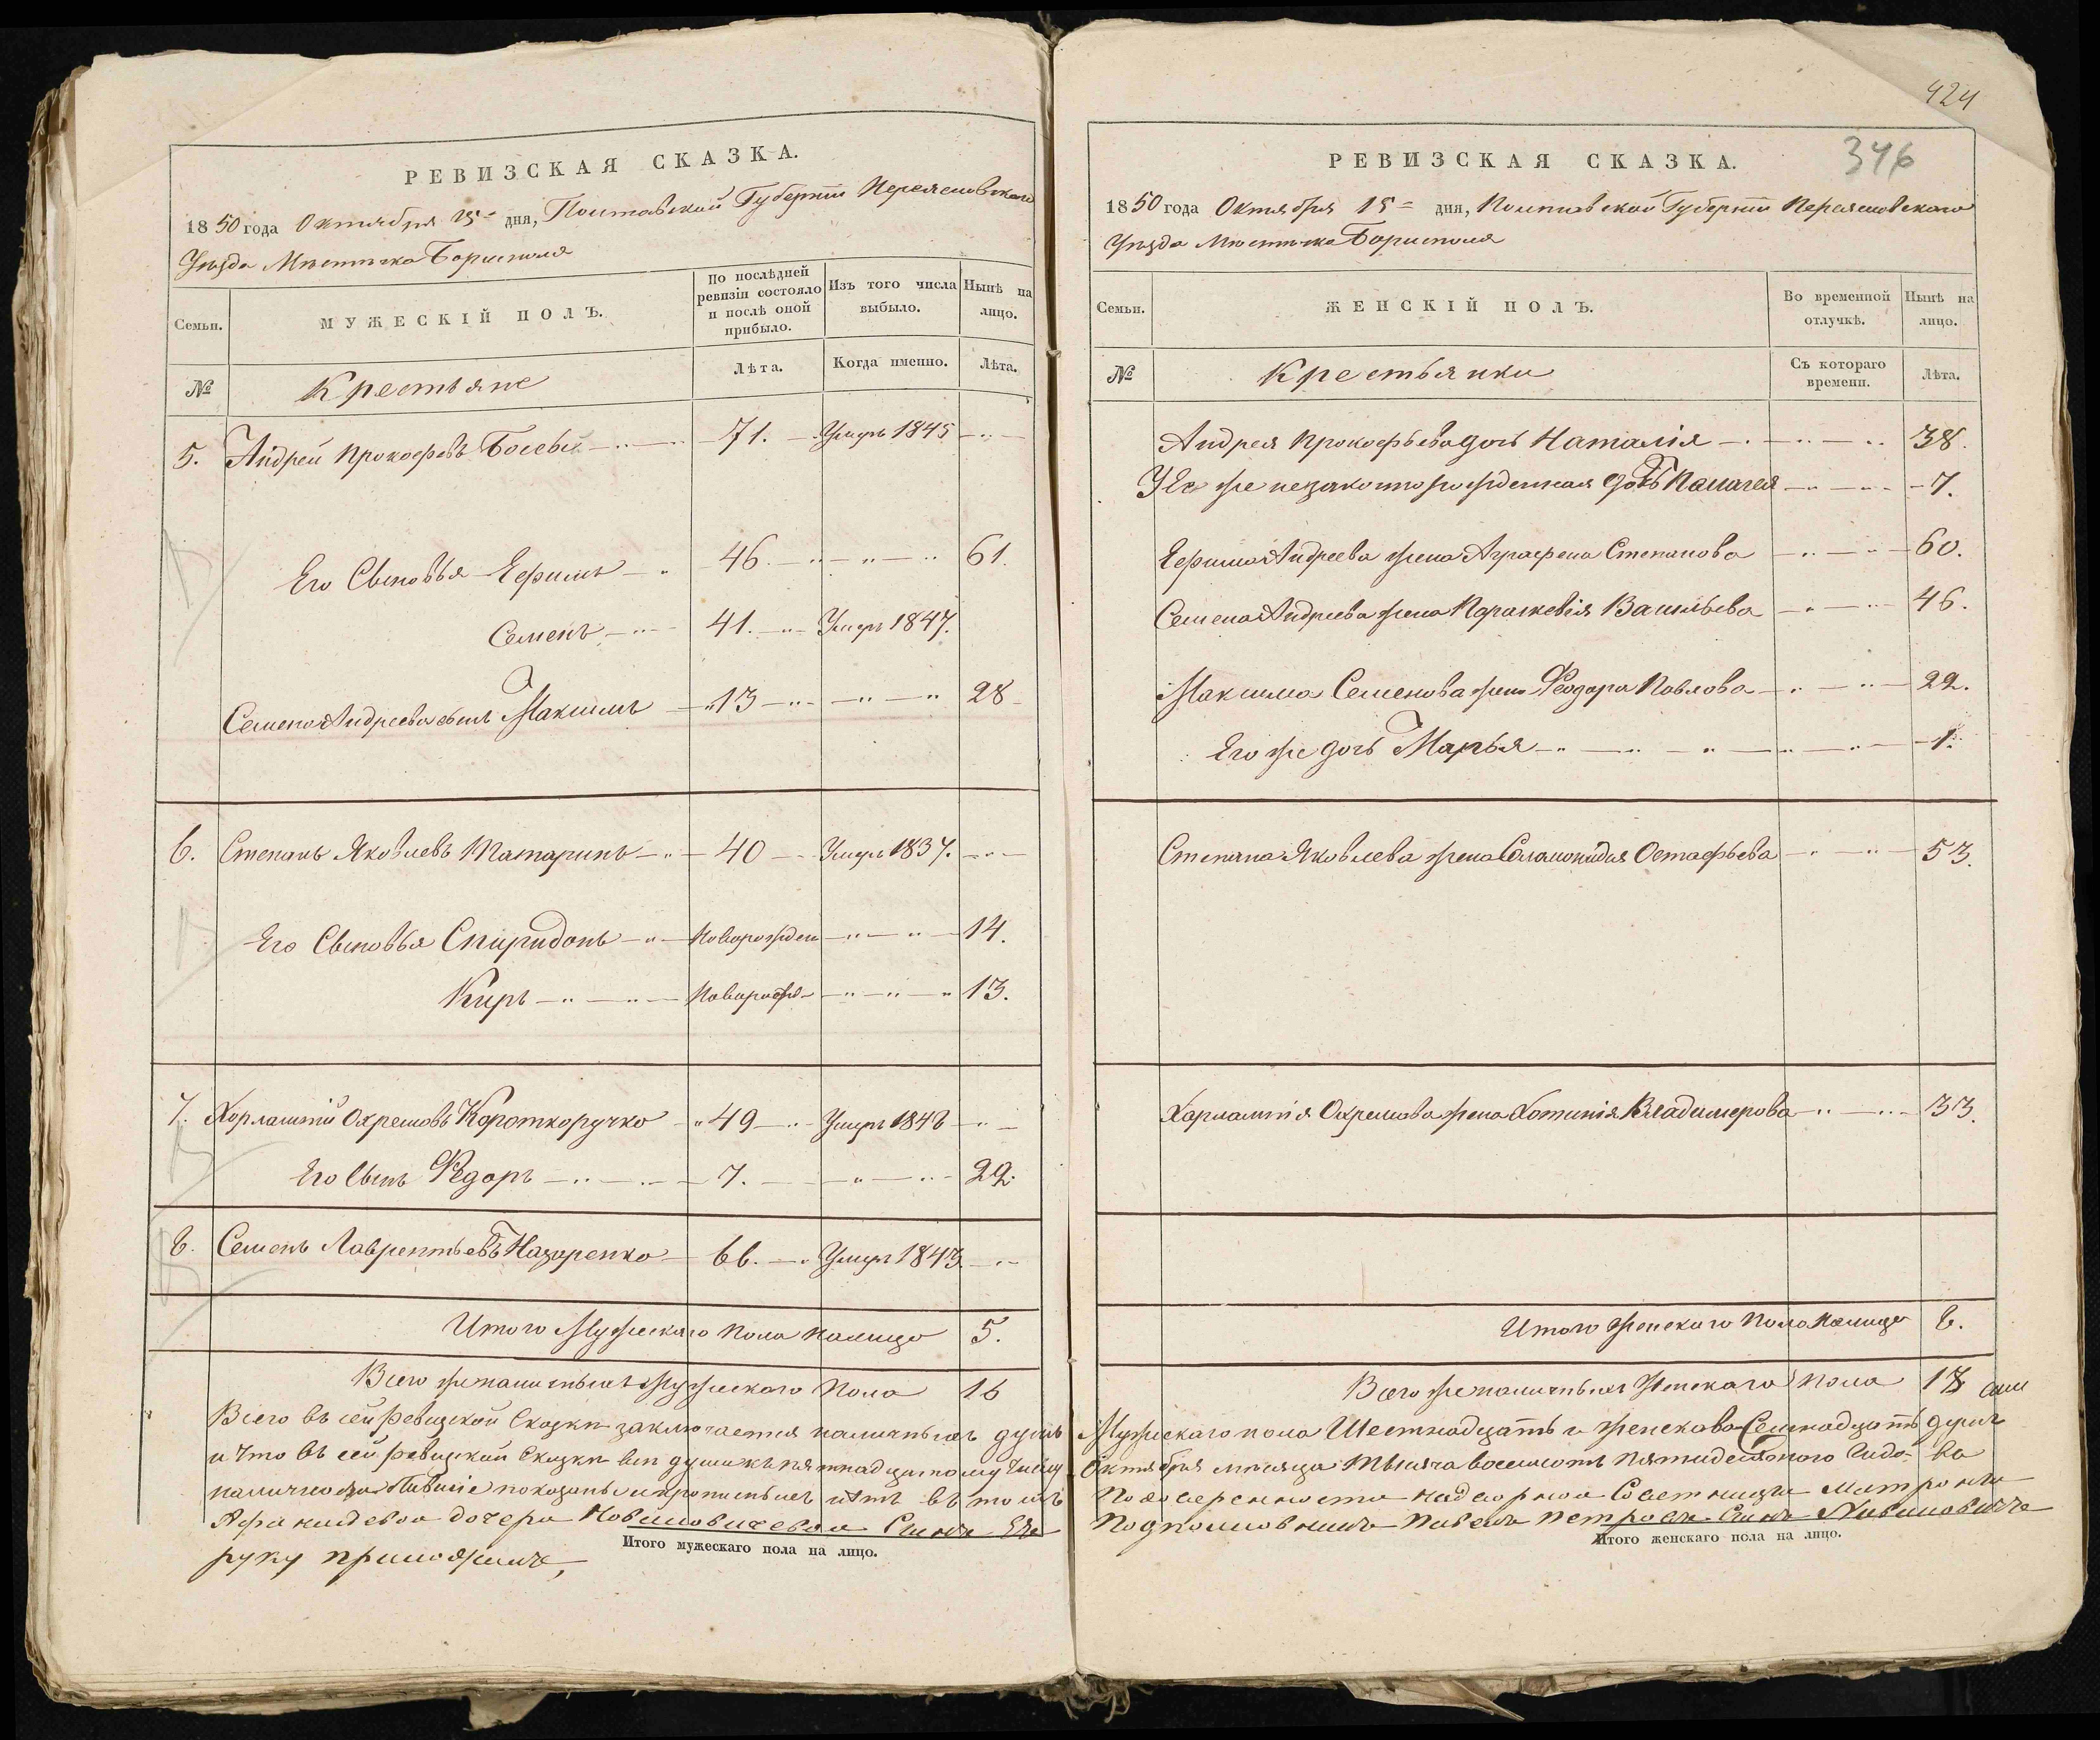 РЕВИЗСКАЯ СКАЗКА.
1850 года Октября 15 дня, Полтавской Губерніи Переяславского
Уезда Мѣстечка Борисполя
Семьи.
МУЖЕСКІЙ ПОЛЪ.
По послѣдней ревизіи состояло и послѣ оной прибыло.
Изъ того числа выбыло.
Нынѣ на лицо.
№
Крестьяне
Лѣта.
Когда именно.
Лѣта.
5. Андрей Прокофьевъ 71. Умеръ 1845
Его Сыновья Ефимъ 46 61.
Семенъ 41. Умеръ 1847.
Семена Андреева сынъ Максимъ 13 28
6. Степанъ Яковлевъ Татаринъ 40 Умеръ 1837.
Его Сыновья Спиридонъ Новорожден 14.
Киръ Новорожд 13.
7. Харлампій Охремовъ Короткоручко 49 Умеръ 1848
Его Сынъ Федоръ 7. 22.
8. Семенъ Лаврентьевъ Назаренко 66. Умеръ 1843
Итого Мужескаго пола налицо 5.
Всего же наличныхъ Мужескаго Пола 16
Всего въ сей Ревизской Сказкѣ заключается наличныхъ душъ
и что въ сей Ревизской Сказкѣ вся души къ пятнадцатому числу
показаны и прописныхъ нѣтъ въ томъ
дочери Сынъ Ея
руку приложилъ,
Итого мужескаго пола на лицо.
424
346
РЕВИЗСКАЯ СКАЗКА.
1850 года Октября 15 дня, Полтавской Губерніи Переяславского
Уезда Мѣстечка Борисполя
Семьи.
ЖЕНСКІЙ ПОЛЪ.
Во временной отлучкѣ.
Нынѣ на лицо.
№
Крестьянки
Съ котораго времени.
Лѣта.
Андрея Прокофьева дочь Наталія 38.
У Ее же незаконнорожденная дочь Палагея 7.
Ефима Андреева жена Аграфена Степанова 60.
Семена Андреева жена Параскевія Васильева 46.
Максима Семенова жена Феодора Павлова 22.
Его же дочь Марья 1.
Степана Яковлева жена Саламонидія Остафьева 53.
Харлампія Охремова жена Хотинія Владимерова 33.
Итого женскаго Пола налицо 8.
Всего же наличныхъ Женскаго пола 17
Мужескаго пола Шестнадцать и женскаго Семнадцать душъ
Октября месяца тысяча восемсотъ пятидесятого
По доверенности надворной Советницы Матроны
Подполковникъ Павелъ Петровъ Сынъ
Итого женскаго пола на лицо.